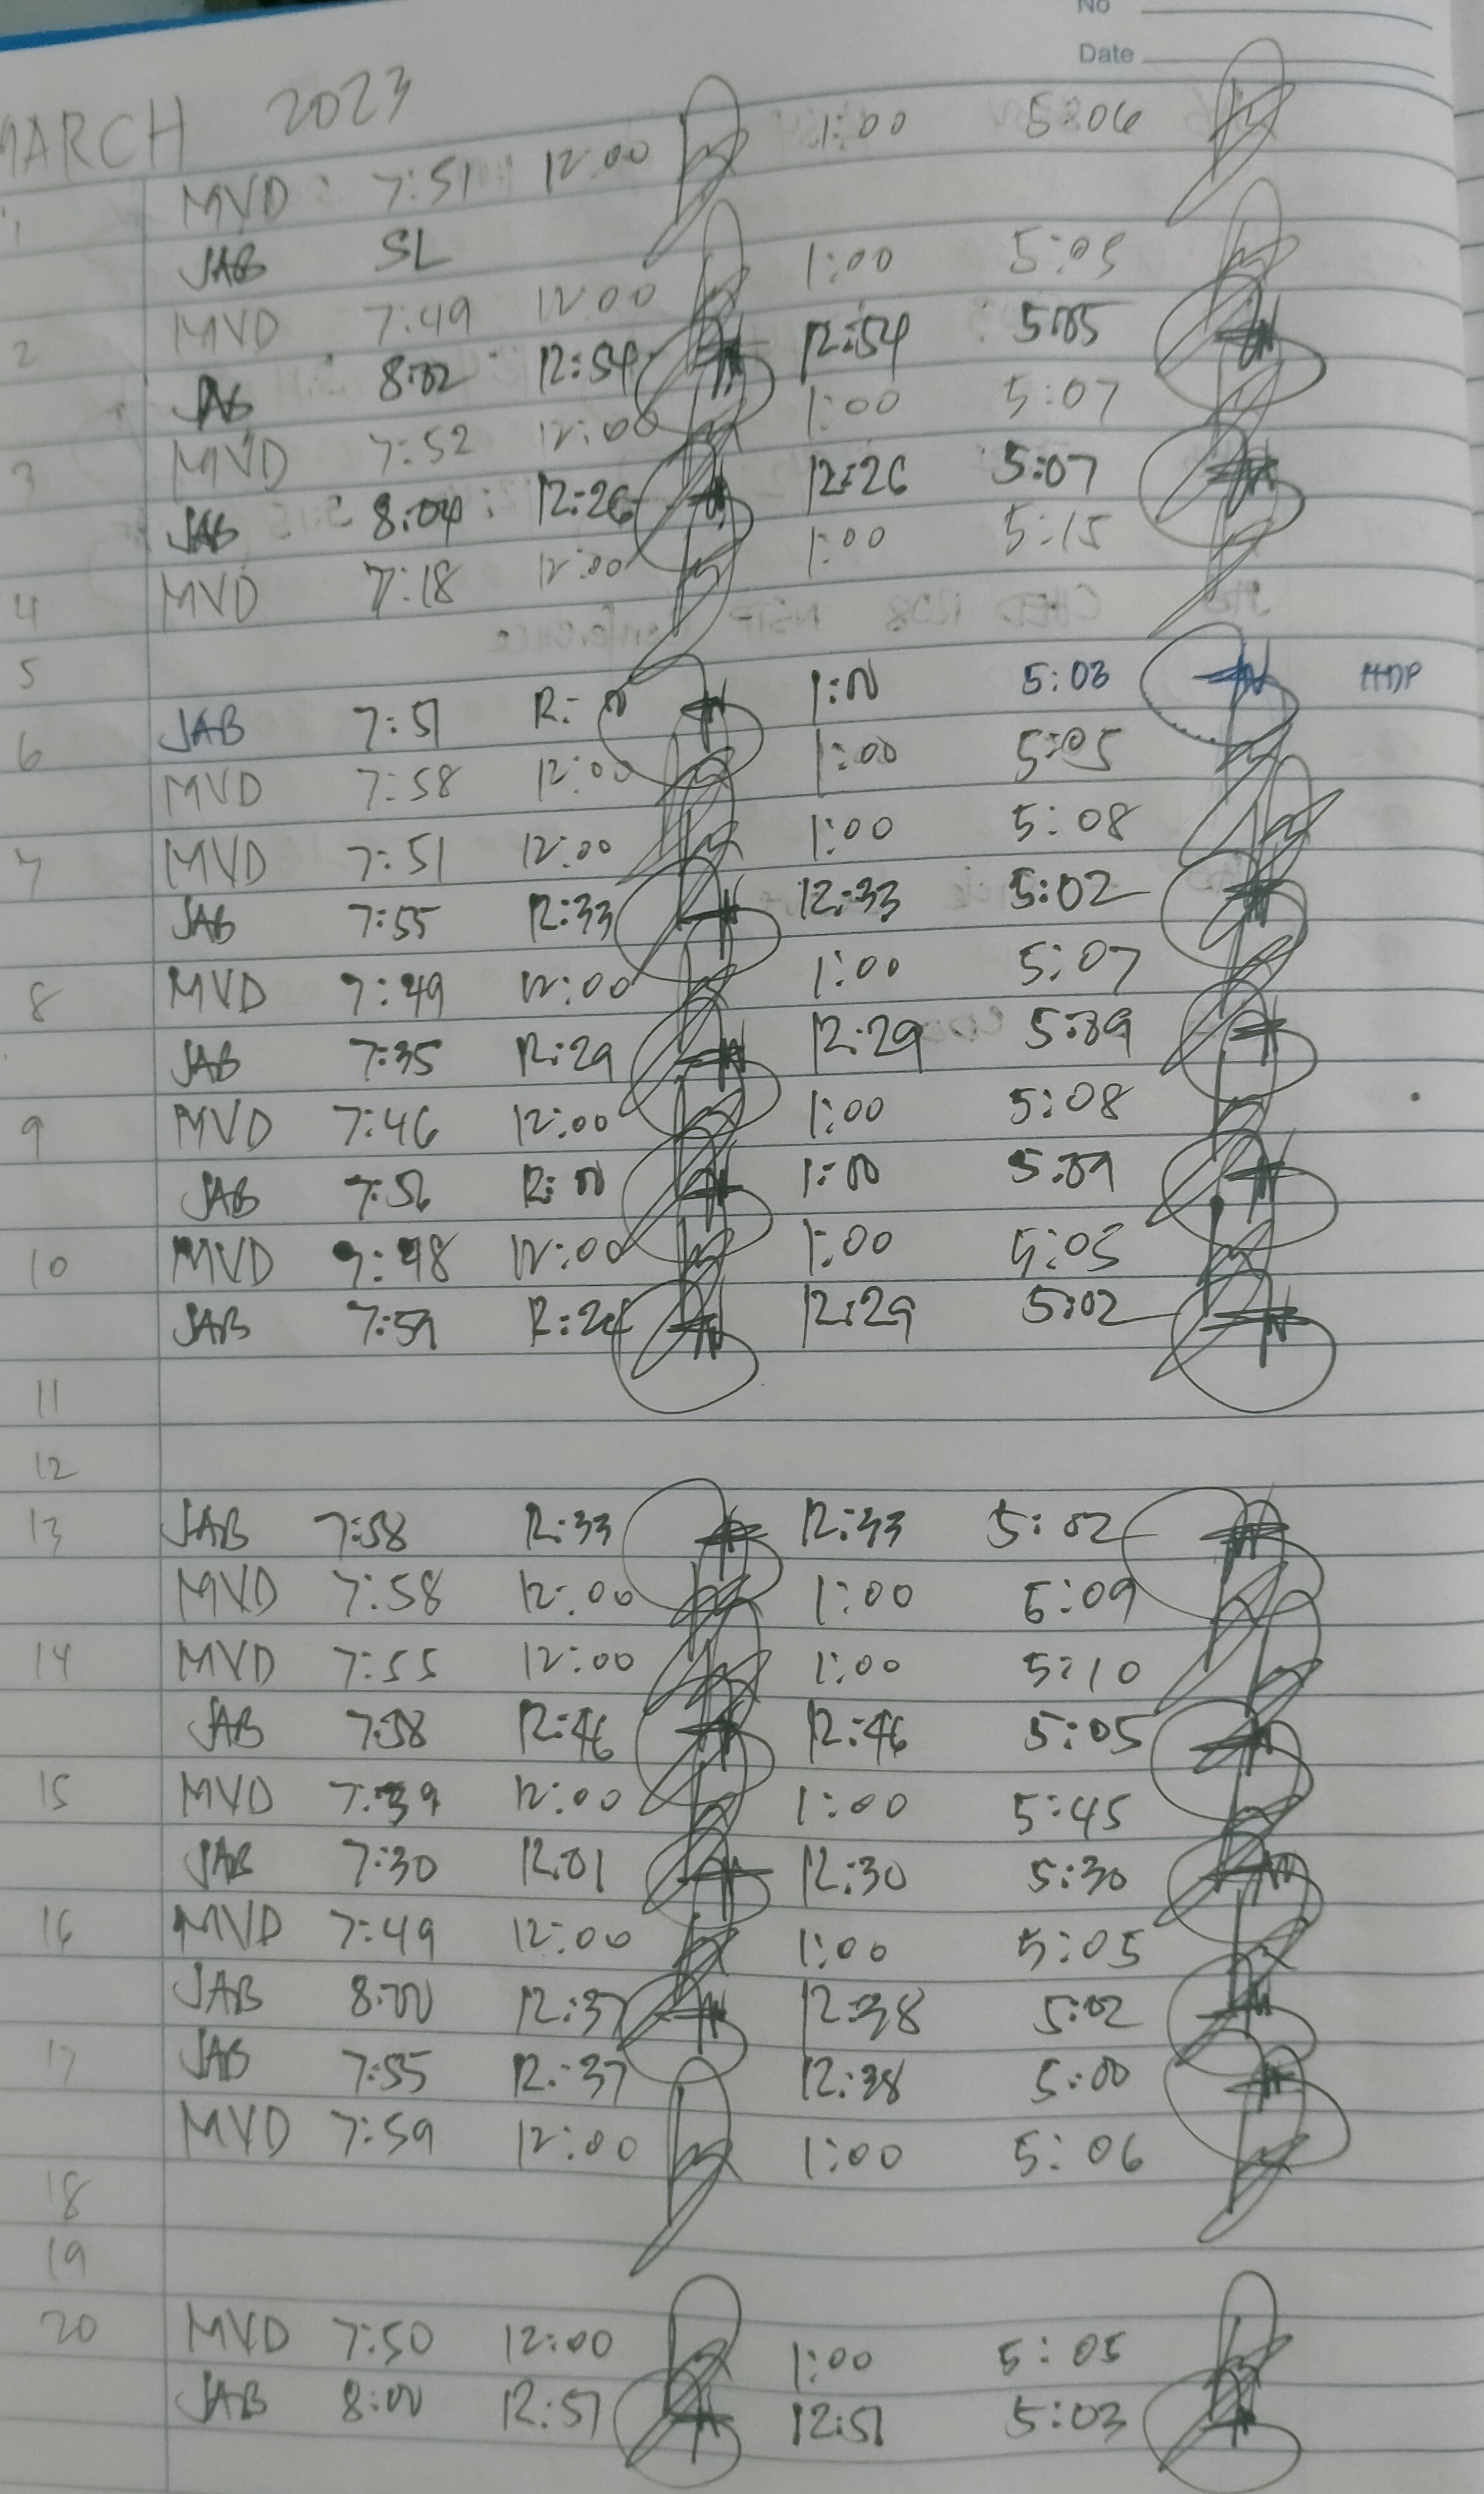 No
Date
MARCH 2023
1 MVD 7:51 12:00 1:00 5:06
JAB SL
2 MVD 7:49 12:00 1:00 5:05
JAB 8:02 12:54 12:54 5:05
3 MVD 7:52 12:00 1:00 5:07
JAB 8:04 12:26 12:26 5:07
4 MVD 7:18 12:00 1:00 5:15
5
6 JAB 7:51 12:00 1:00 5:03
MVD 7:58 12:00 1:00 5:05
7 MVD 7:51 12:00 1:00 5:08
JAB 7:55 12:33 12:33 5:02
8 MVD 7:49 12:00 1:00 5:07
JAB 7:35 12:29 12:29 5:09
9 MVD 7:46 12:00 1:00 5:08
JAB 7:56 12:00 1:00 5:09
10 MVD 7:48 12:00 1:00 5:05
JAB 7:59 12:29 5:02
11
12
13 JAB 7:58 12:33 12:33 5:02
MVD 7:58 12:00 1:00 5:09
14 MVD 7:55 12:00 1:00 5:10
JAB 7:58 12:46 12:46 5:05
15 MVD 7:39 12:00 1:00 5:45
JAB 7:30 12:01 12:30 5:30
16 MVD 7:49 12:00 1:00 5:05
JAB 8:00 12:37 12:38 5:02
17 JAB 7:55 12:37 12:38 5:00
MVD 7:59 12:00 1:00 5:06
18
19
20 MVD 7:50 12:00 1:00 5:05
JAB 8:00 12:51 12:51 5:03